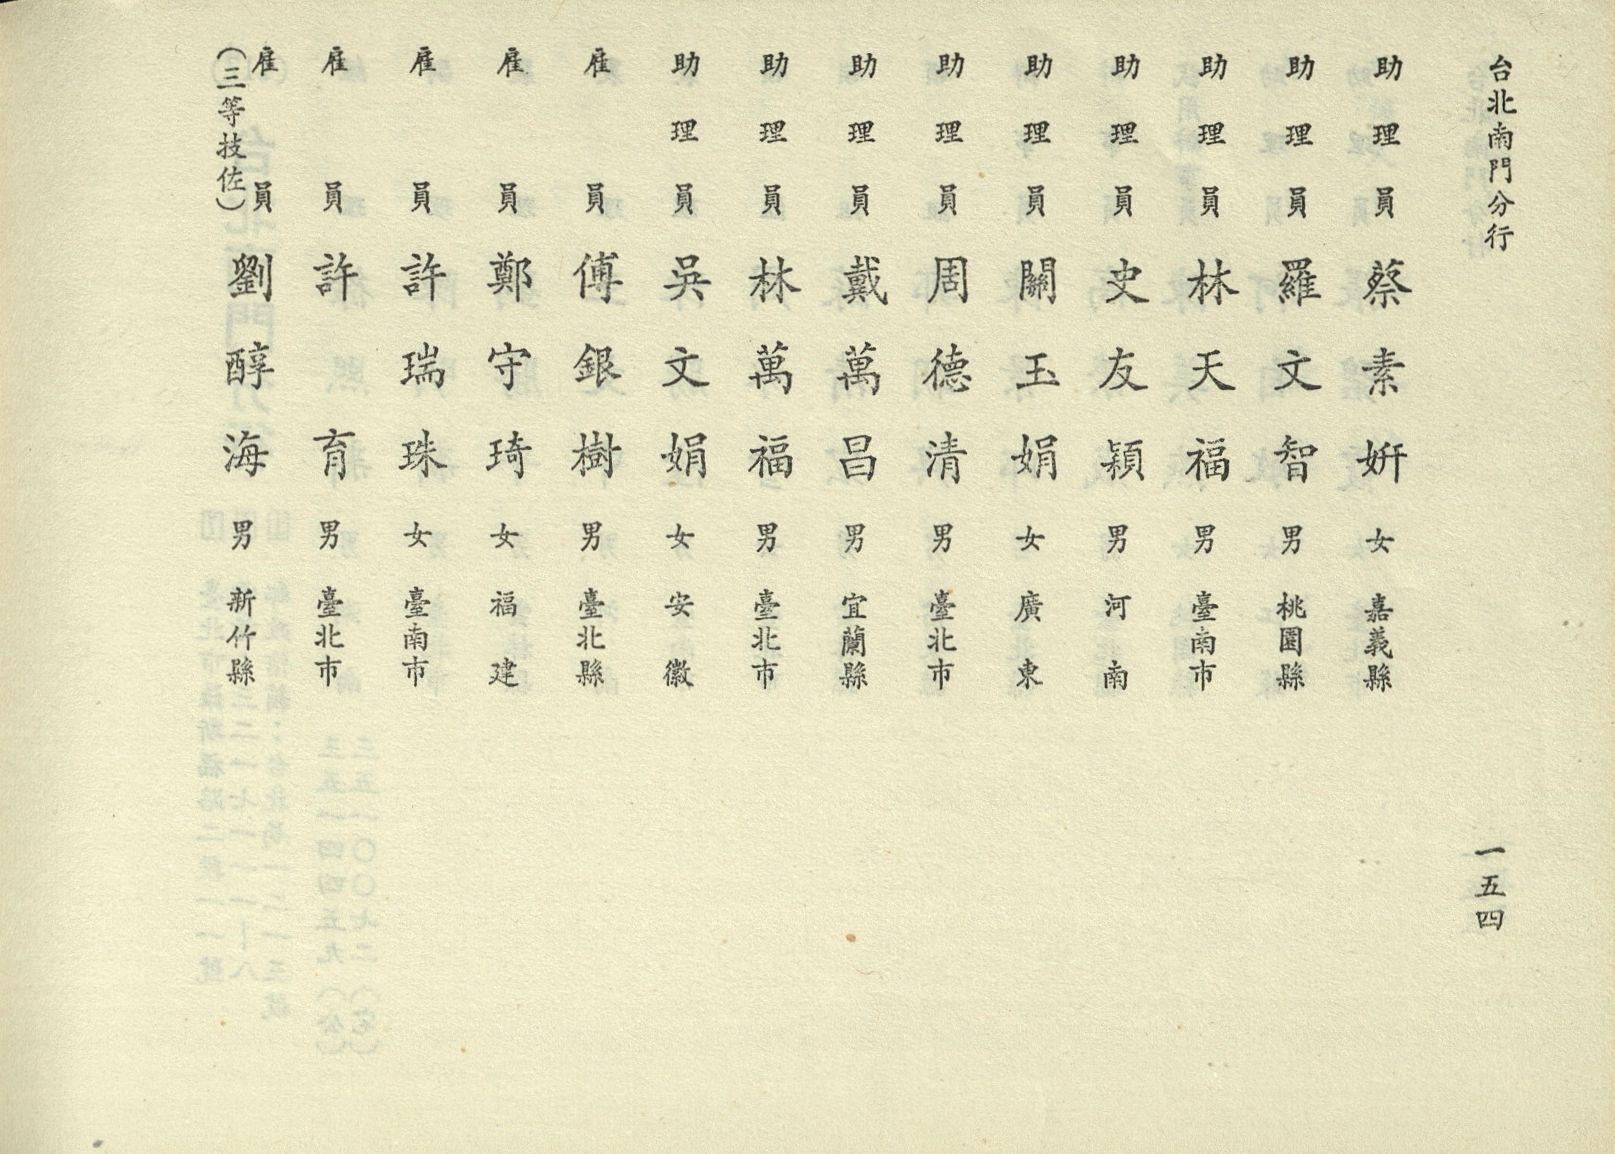 台北南門分行
一五四
助理員 蔡素姸 女 嘉義縣
助理員 羅文智 男 桃園縣
助理員 林天福 男 臺南市
助理員 史友穎 男 河南
助理員 關玉娟 女 廣東
助理員 周德清 男 臺北市
助理員 戴萬昌 男 宜蘭縣
助理員 林萬福 男 臺北市
助理員 吳文娟 女 安徽
雇員 傅銀樹 男 臺北縣
雇員 鄭守琦 女 福建
雇員 許瑞珠 女 臺南市
雇員 許育 男 臺北市
雇員 劉醇海 男 新竹縣
(三等技佐)